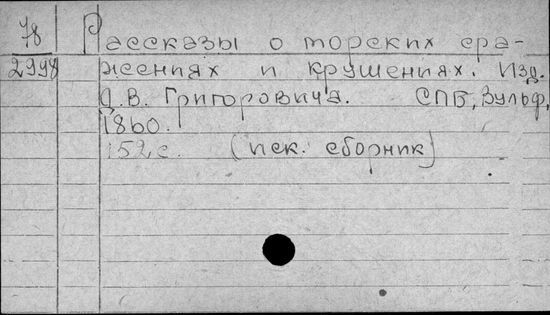 78
2998
Рассказы о морских сра-
жениях и крушениях. Изд.
Д.В. Григоровича. СПБ, Вульф,
1860.
152 с. (пск. сборник)